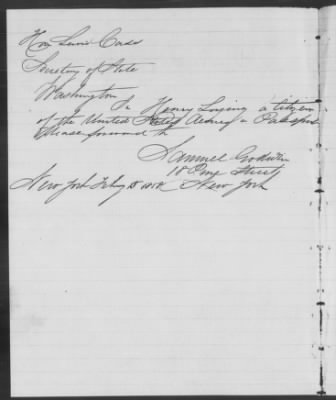 Hon Lewis Cass
Secretary of State
Washington
Henry a citizen
of the United States desiring a Passport
Please forward to
Samuel Godwin
18 Street
New York Feby 5 1858 New York